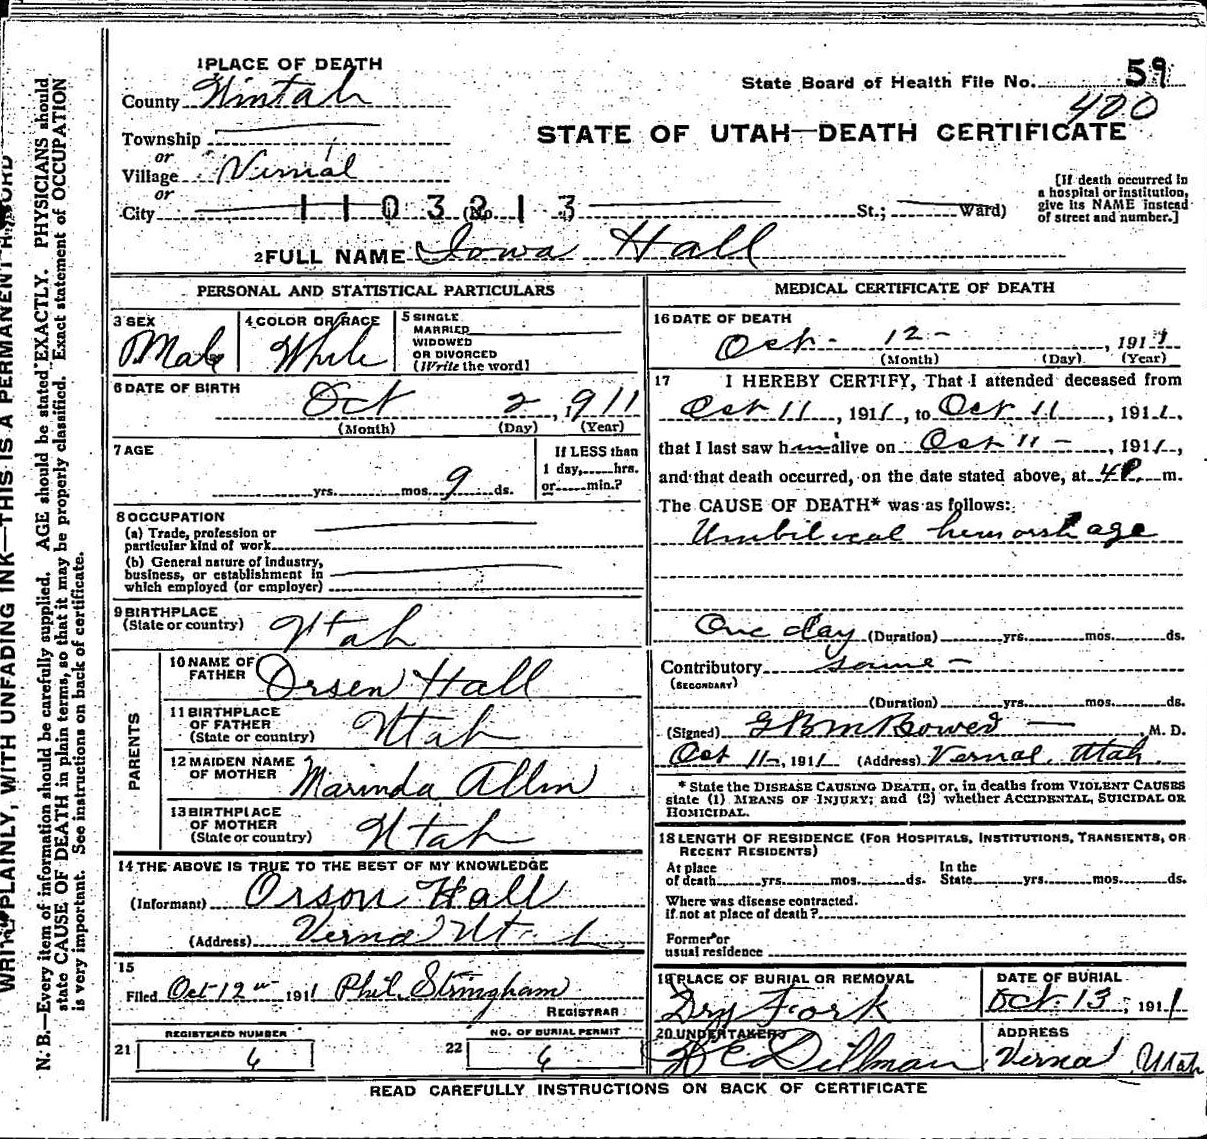 1 PLACE OF DEATH
County Uintah
State Board of Health File No. 59
400
STATE OF UTAH—DEATH CERTIFICATE
Township
or
Village Vernal
or
City 1103213 (No. St.; Ward)
[If death occurred in
a hospital or institution,
give its NAME instead
of street and number.]
2 FULL NAME Iowa Hall
PERSONAL AND STATISTICAL PARTICULARS
3 SEX
Male
4 COLOR OR RACE
White
5 SINGLE
MARRIED
WIDOWED
OR DIVORCED
(Write the word)
6 DATE OF BIRTH
Oct 2, 1911
(Month) (Day) (Year)
7 AGE
yrs. mos. 9 ds.
If LESS than
1 day, hrs.
or min.?
8 OCCUPATION
(a) Trade, profession or
particular kind of work
(b) General nature of industry,
business, or establishment in
which employed (or employer)
9 BIRTHPLACE
(State or country) Utah
PARENTS
10 NAME OF
FATHER Orsen Hall
11 BIRTHPLACE
OF FATHER
(State or country) Utah
12 MAIDEN NAME
OF MOTHER Marinda Allen
13 BIRTHPLACE
OF MOTHER
(State or country) Utah
14 THE ABOVE IS TRUE TO THE BEST OF MY KNOWLEDGE
(Informant) Orson Hall
(Address) Vernal Utah
15
Filed Oct 12, 1911 Phil Stringham
REGISTRAR
REGISTERED NUMBER
21 6
NO. OF BURIAL PERMIT
22 6
MEDICAL CERTIFICATE OF DEATH
16 DATE OF DEATH
Oct- 12-, 1911
(Month) (Day) (Year)
17 I HEREBY CERTIFY, That I attended deceased from
Oct 11, 1911, to Oct 11, 1911,
that I last saw h alive on Oct 11-, 1911,
and that death occurred, on the date stated above, at 4 P. m.
The CAUSE OF DEATH* was as follows:
Umbilical hemorrhage
One day (Duration) yrs. mos. ds.
Contributory same -
(SECONDARY)
(Duration) yrs. mos. ds.
(Signed) M. D.
Oct 1911 (Address) Vernal, Utah.
* State the DISEASE CAUSING DEATH, or, in deaths from VIOLENT CAUSES
state (1) MEANS OF INJURY; and (2) whether ACCIDENTAL, SUICIDAL OR
HOMICIDAL.
18 LENGTH OF RESIDENCE (FOR HOSPITALS, INSTITUTIONS, TRANSIENTS, OR
RECENT RESIDENTS)
At place
of death yrs. mos. ds.
In the
State yrs. mos. ds.
Where was disease contracted.
If not at place of death?
Former or
usual residence
19 PLACE OF BURIAL OR REMOVAL
Dry Fork
DATE OF BURIAL
Oct 13, 1911
20 UNDERTAKER
Dillman
ADDRESS
Vernal Utah
READ CAREFULLY INSTRUCTIONS ON BACK OF CERTIFICATE
WRITE PLAINLY, WITH UNFADING INK—THIS IS A PERMANENT RECORD
N. B.—Every item of information should be carefully supplied. AGE should be stated EXACTLY. PHYSICIANS should
state CAUSE OF DEATH in plain terms, so that it may be properly classified. Exact statement of OCCUPATION
is very important. See instructions on back of certificate.